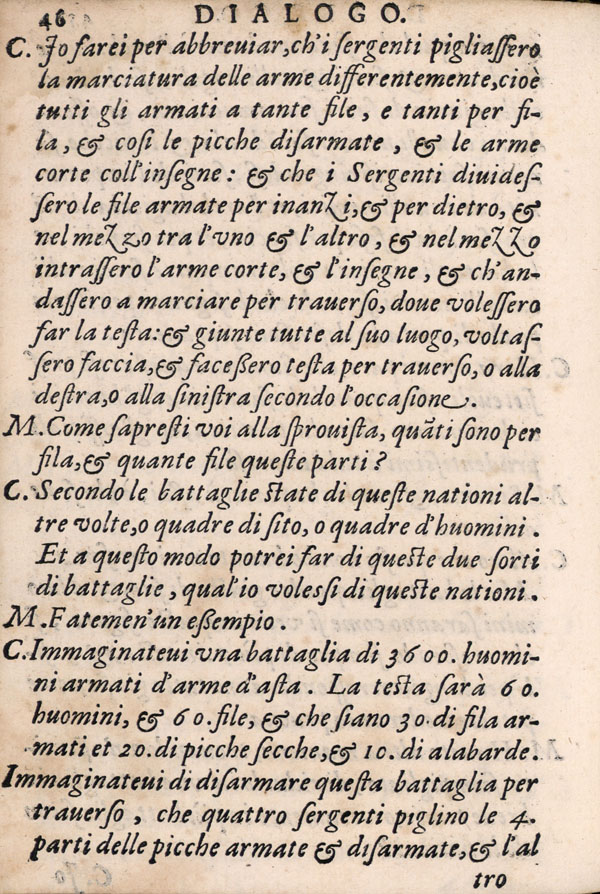 46 DIALOGO.
C. Io farei per abbreuiar,ch'i ſergenti pigliaſſero
la marciatura delle arme differentemente,cioè
tutti gli armati a tante file, e tanti per fi-
la, & coſi le picche diſarmate, & le arme
corte coll'inſegne: & che i Sergenti diuideſ-
ſero le file armate per inanzi,& per dietro, &
nel mezzo tra l'vno & l'altro, & nel mezzo
intraſſero l'arme corte, & l'inſegne, & ch'an-
daſſero a marciare per trauerſo, doue voleſſero
far la teſta: & giunte tutte al ſuo luogo, voltaſ-
ſero faccia,& faceßero teſta per trauerſo, o alla
deſtra,o alla ſiniſtra ſecondo l'occaſione.
M. Come ſapreſti voi alla ſprouiſta, quāti ſono per
fila,& quante file queſte parti?
C. Secondo le battaglie ſtate di queſte nationi al-
tre volte,o quadre di ſito, o quadre d'huomini.
Et a queſto modo potrei far di queſte due ſorti
di battaglie, qual'io voleſſi di queſte nationi.
M. Fatemen'un eßempio.
C. Immaginateui vna battaglia di 3600. huomi-
ni armati d'arme d'aſta. La teſta ſarà 60.
huomini, & 60. file, & che ſiano 30. di fila ar-
mati et 20. di picche ſecche,& 10. di alabarde.
Immaginateui di diſarmare queſta battaglia per
trauerſo, che quattro ſergenti piglino le 4.
parti delle picche armate & diſarmate,& l'al
tro